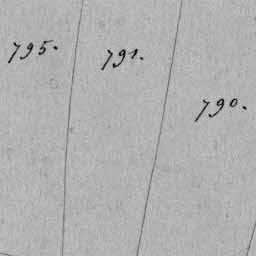 795.
791.
790.